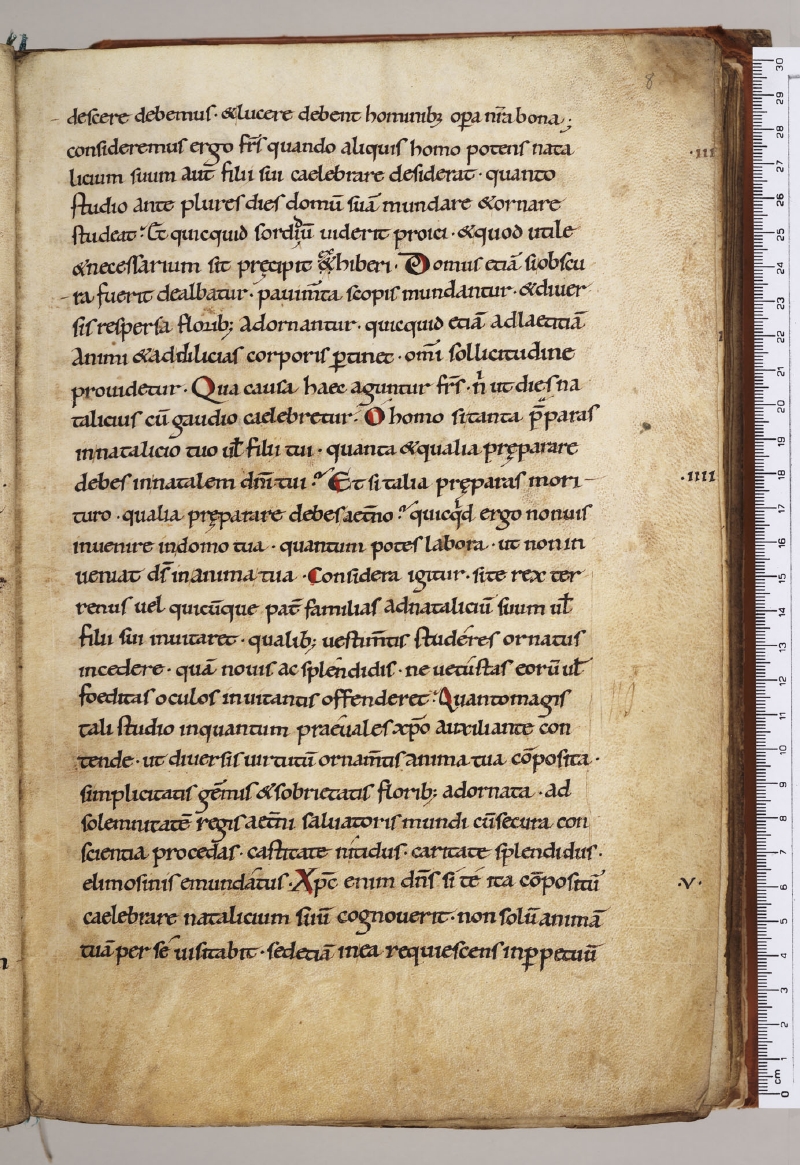 8
descere debemus · & lucere debent hominib; op̄a nr̄a bona ;
consideremus ergo fr̄s quando aliquis homo potens nata ·III
licium suum aut filii sui caelebrare desiderat · quanto
studio ante plures dies domū suā mundare & ornare
studeat · Et quicquid sordiū uiderit proici · & quod utile
& necessarium sit pręcipit exhiberi · Domus etiā si obscu
ra fuerit dealbatur · pauim̄ta scopis mundantur · & diuer
sis respersa florib; adornantur · quicquid etiā ad laetitiā
animi & ad dilicias corporis ꝑtinet · om̄i sollicitudine
prouidetur · Qua causa haec aguntur fr̄s · n̄ ut dies na
talicius cū gaudio caelebretur · O homo si tanta p̄paras
in natalicio tuo ul̄ filii tui · quanta & qualia pręparare
debes in natalem dn̄i tui · Et si talia pręparas mori ·IIII
turo · qualia pręparare debes aet̄no · quicqͥd ergo non uis
inuenire in domo tua · quantum potes labora · ut non in
ueniat d̄s in anima tua · Considera igitur · si te rex ter
renus uel quicūque pat̄ familias ad nataliciū suum ul̄
filii sui inuitaret · qualib; uestim̄tis studéres ornatus
incedere · quā nouis ac splendidis · ne uetustas eorū ul̄
foeditas oculos inuitantis offenderet · Quanto magis
tali studio inquantum praeuales xp̄o auxiliante con
tende · ut diuersis uirtutū ornam̄tis anima tua cōposita ·
simplicitatis gēmis & sobrietatis florib; adornata · ad
solemnitatē regis aet̄ni saluatoris mundi cū secura con
scientia procedas · castitate nitidus · caritate splendidus ·
elimosinis emundatus · Xp̄c enim dn̄s si te ita cōpositū ·V·
caelebrare natalicium suū cognouerit · non solū animā
tuā per sé uisitabit · sed etiā in ea requiescens in ꝑpetuū